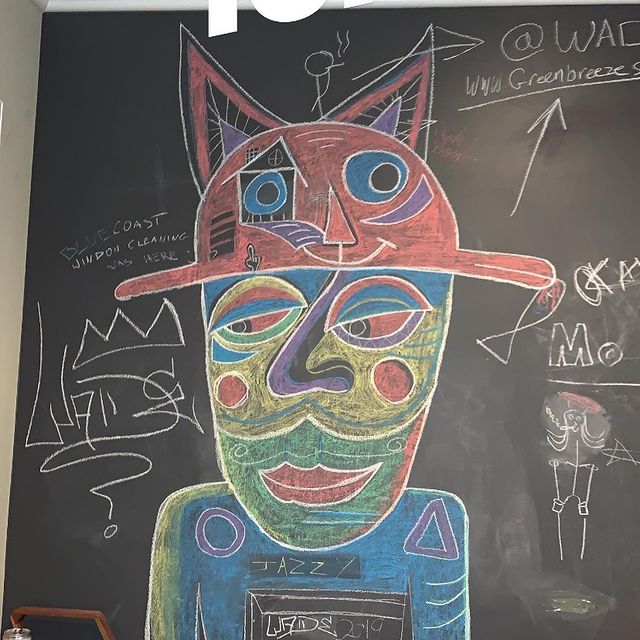 @WAD
www.Greenbreezes
BLUECOAST
WINDOW CLEANING
WAS HERE
KA
WADE
Mo
JAZZY
WADE 2019